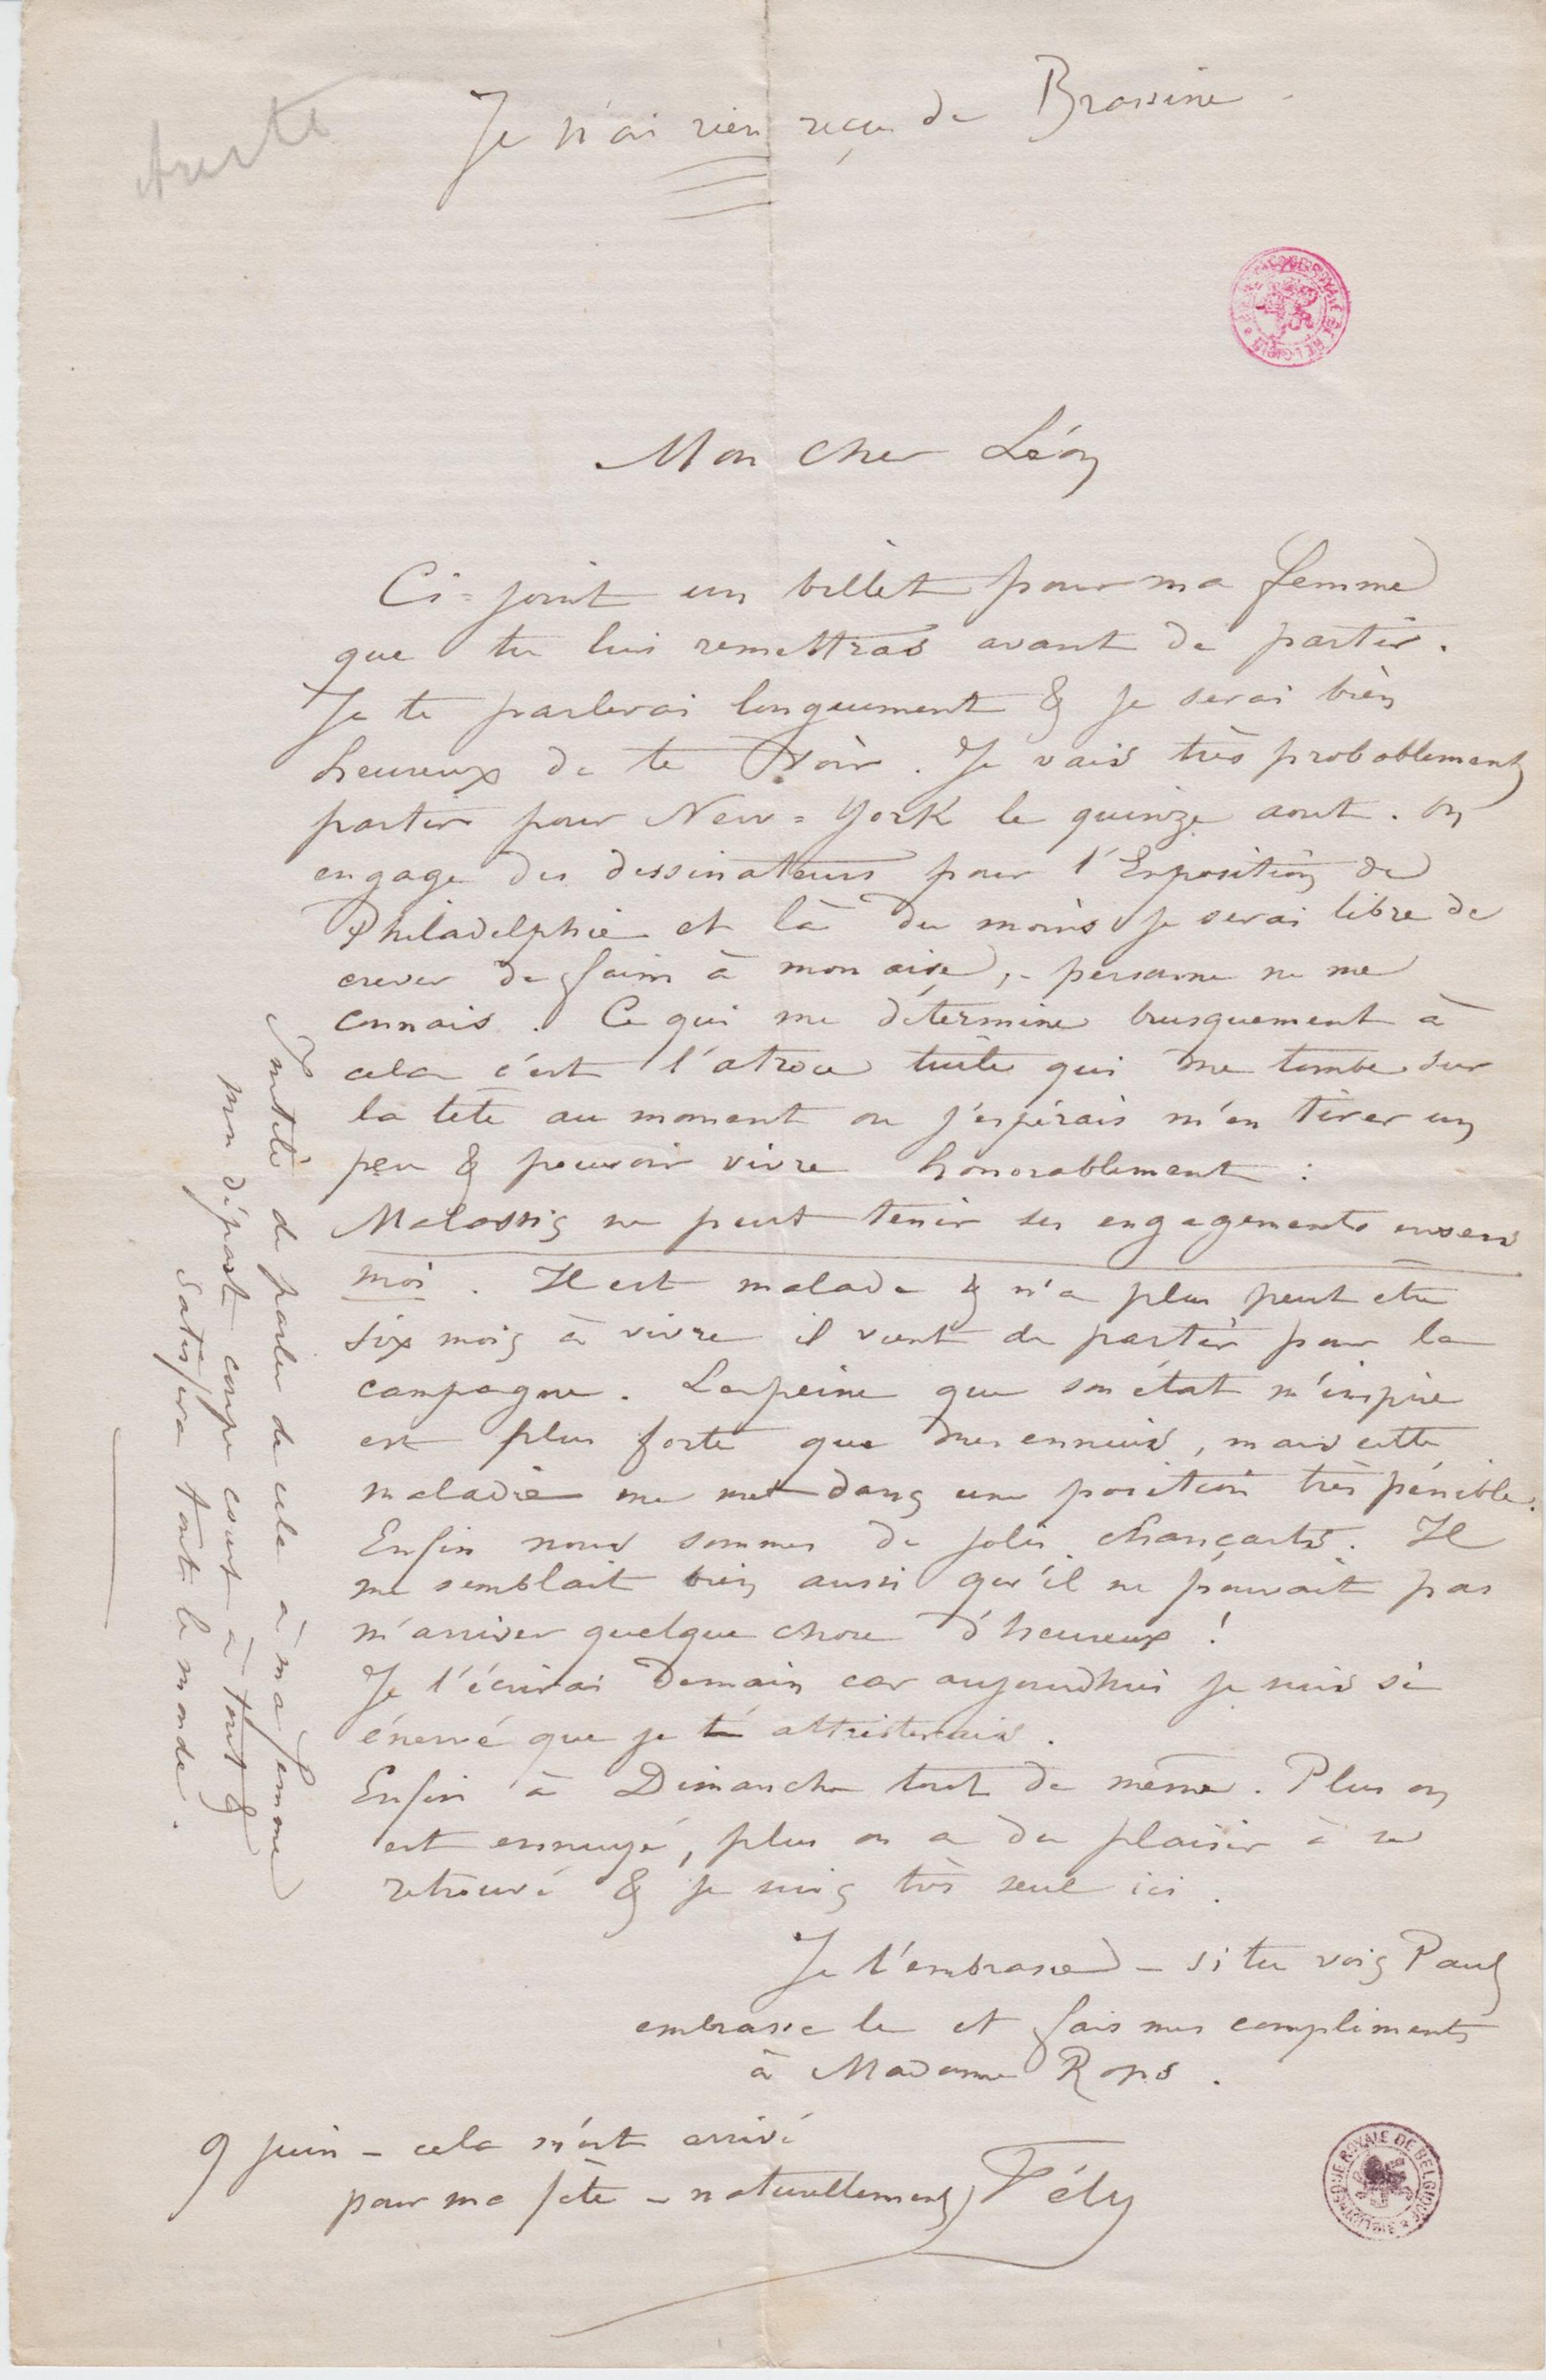 Je n'ai rien reçu de Brassine -
Mon cher Léon
Ci-joint un billet pour ma femme
que tu lui remettras avant de partir.
Je te parlerai longuement & je serai bien
heureux de te voir. Je vais très probablement
partir pour New-York le quinze aout. On
engage des dessinateurs pour l'Exposition de
Philadelphie et là du moins je serai libre de
crever de faim à mon aise, - personne ne me
connais. Ce qui me détermine brusquement à
cela c'est l'atroce tuile qui me tombe sur
la tete au moment ou j'espérais m'en tirer un
peu & pouvoir vivre honorablement :
Malassis ne peut tenir ses engagements envers
moi. Il est malade & n'a plus peut etre
six mois à vivre il vient de partir pour la
campagne. La peine que son état m'inspire
est plus forte que mes ennuis, mais cette
maladie me met dans une position très pénible.
Enfin nous sommes de jolis chançards. Il
me semblait bien aussi qu'il ne pouvait pas
m'arriver quelque chose d'heureux !
Je t'écrirai demain car aujourdhui je suis si
énervé que je t'attristerais.
Enfin à Dimanche tout de même. Plus on
est ennuyé, plus on a du plaisir à se
retrouvé & je suis très seul ici.
Je t'embrasse - si tu vois Paul
embrasse le et fais mes compliments
à Madame Rops.
9 juin - cela m'est arrivé
pour ma fête - naturellement
Fély
Inutile de parler de cela à ma femme
mon départ coupe court à tout &
satisfera tout le monde.
BIBLIOTHEQUE ROYALE DE BELGIQUE